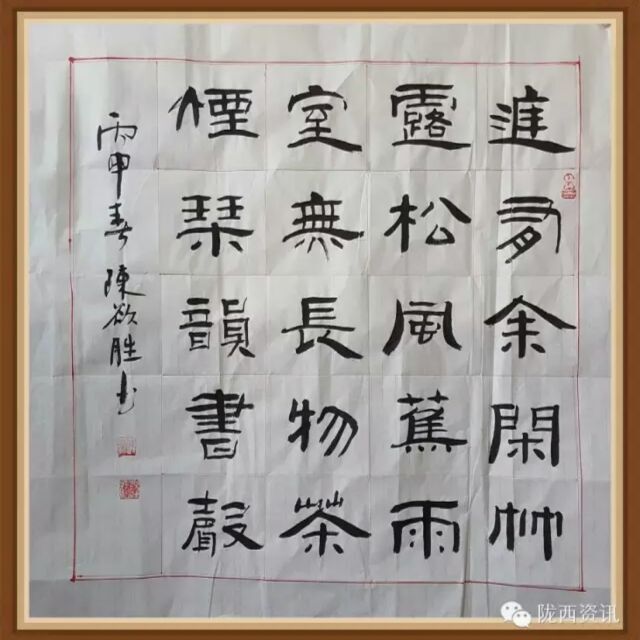 進有余閑竹
露松風蕉雨
室無長物茶
煙琴韻書聲
丙申春陳欲胜书
陇西资讯